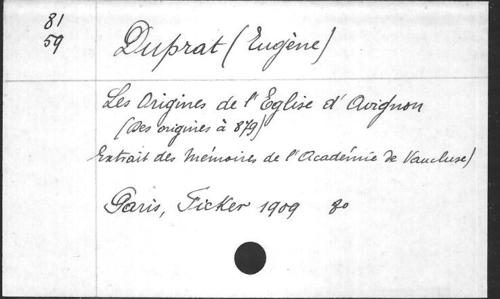 81
59
Duprat (Eugène)
Les Origines de l'Eglise d'Avignon
(Des origines à 879)
Extrait des Mémoires de l'Académie de Vaucluse)
Paris, Ficker 1909 8o